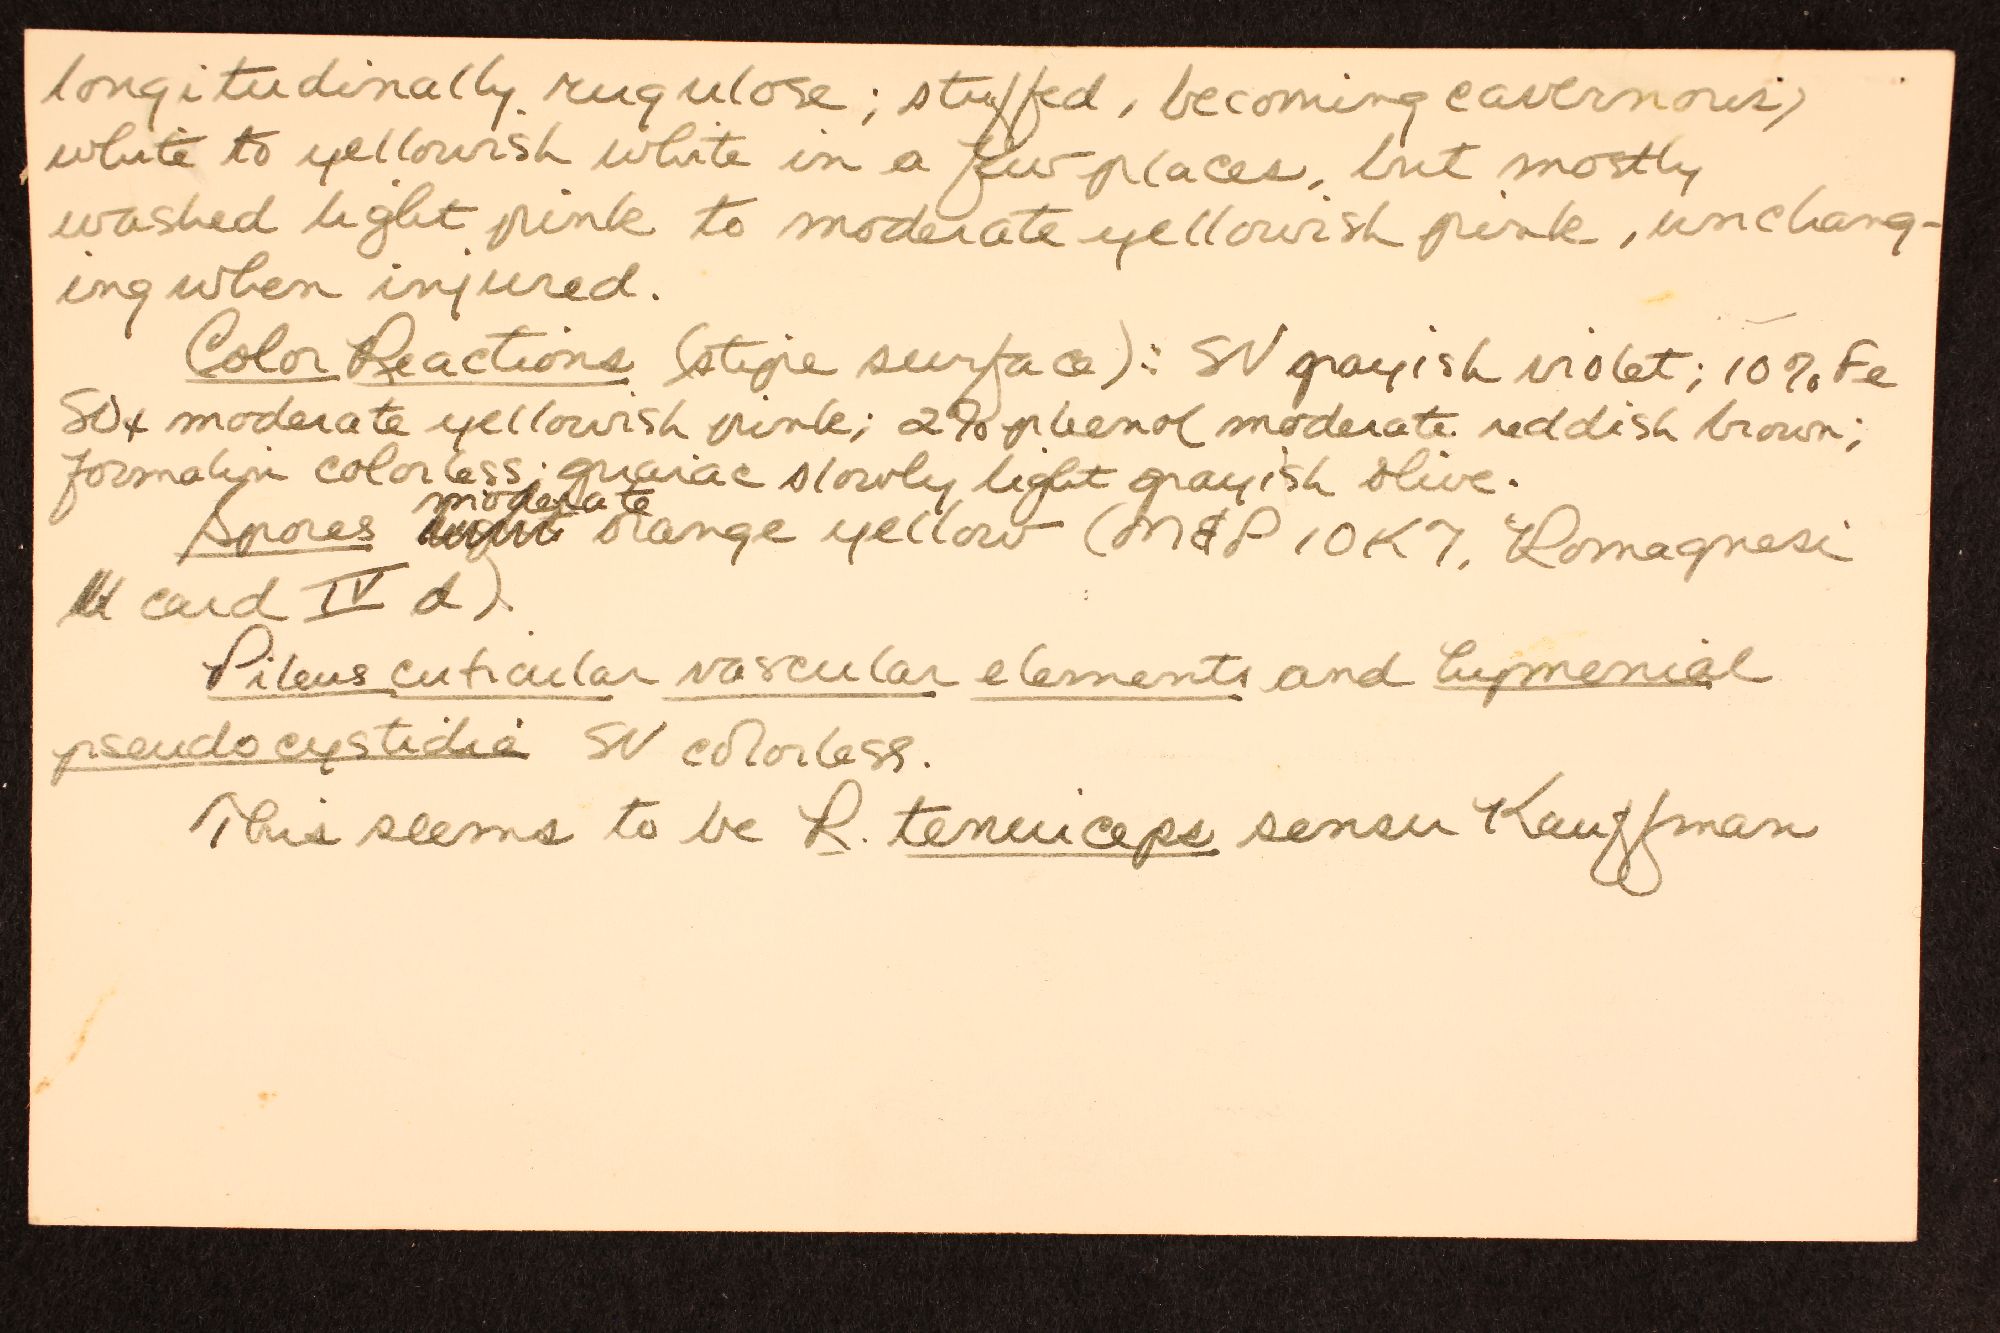 longitudinally rugulose; stuffed, becoming cavernous,
white to yellowish white in a few places, but mostly
washed light pink to moderate yellowish pink, unchang-
ing when injured.
Color Reactions (stipe surface): SV grayish violet; 10% Fe
SO4 moderate yellowish pink; 2% phenol moderate reddish brown;
formalin colorless; guaiac slowly light grayish olive.
Spores moderate orange yellow (M&P 10K7, Romagnesi
card IV d).
Pileus cuticular vascular elements and hymenial
pseudocystidia SV colorless.
This seems to be R. tenuiceps sensu Kauffman